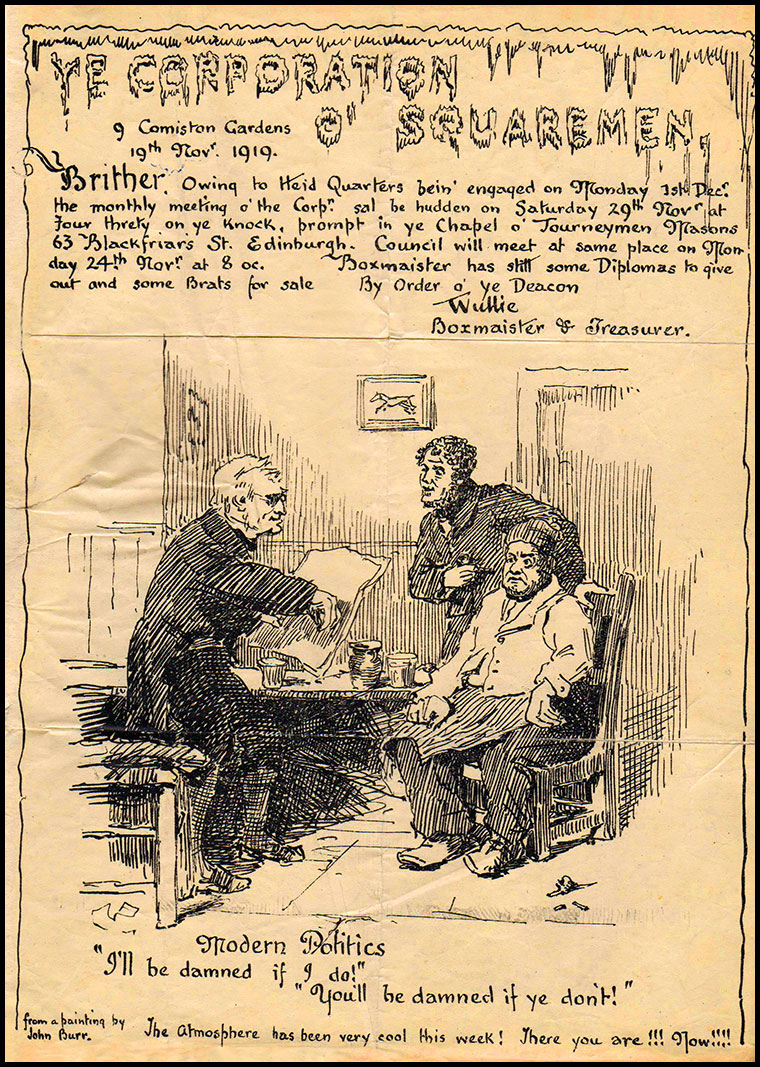 YE CORPORATION
O' SQUAREMEN,
9 Comiston Gardens
19th Novr. 1919.
Brither, Owing to Heid Quarters bein' engaged on Monday 1st Decr.
the monthly meeting o' the Corpn. sal be hudden on Saturday 29th Novr at
Four threty on ye Knock, prompt in ye Chapel o' Journeymen Masons
63 Blackfriars St. Edinburgh. Council will meet at same place on Mon
day 24th Novr at 8 oc. Boxmaister has still some Diplomas to give
out and some Brats for sale By Order o' ye Deacon
Wullie
Boxmaister & Treasurer.
Modern Politics
"I'll be damned if I do!"
"You'll be damned if ye don't!"
from a painting by
John Burr.
The Atmosphere has been very cool this week! There you are!!! Now!!!!